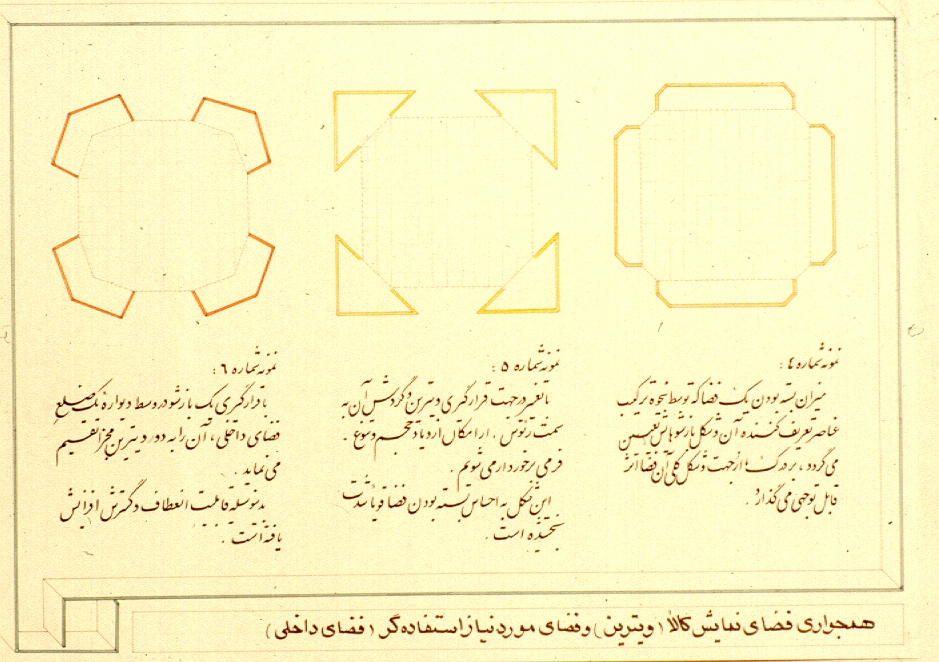 نمونه شماره ٤ :
میزان بسته بودن یک فضا که توسط نحوه ترکیب
عناصر تعریف کننده آن و شکل بازشوهایش تعیین
می گردد ، بر درک ما از جهت و شکل کلی آن فضا اثر
قابل توجهی می گذارد .
نمونه شماره ٥ :
با تغییر در جهت قرارگیری ویترین و گردش آن به
سمت رئوس ، از امکان ازدیاد حجم و تنوع
فرمی برخوردار می شویم .
این شکل به احساس بسته بودن فضا قوتا شدت
بخشیده است .
نمونه شماره ٦ :
با قرارگیری یک بازشو در وسط دیواره یک ضلع
فضای داخلی ، آن را به دو ویترین مجزا تقسیم
می نماید .
بدینوسیله قابلیت انعطاف و گسترش افزایش
یافته است .
همجواری فضای نمایش کالا (ویترین) و فضای مورد نیاز استفاده گر (فضای داخلی)